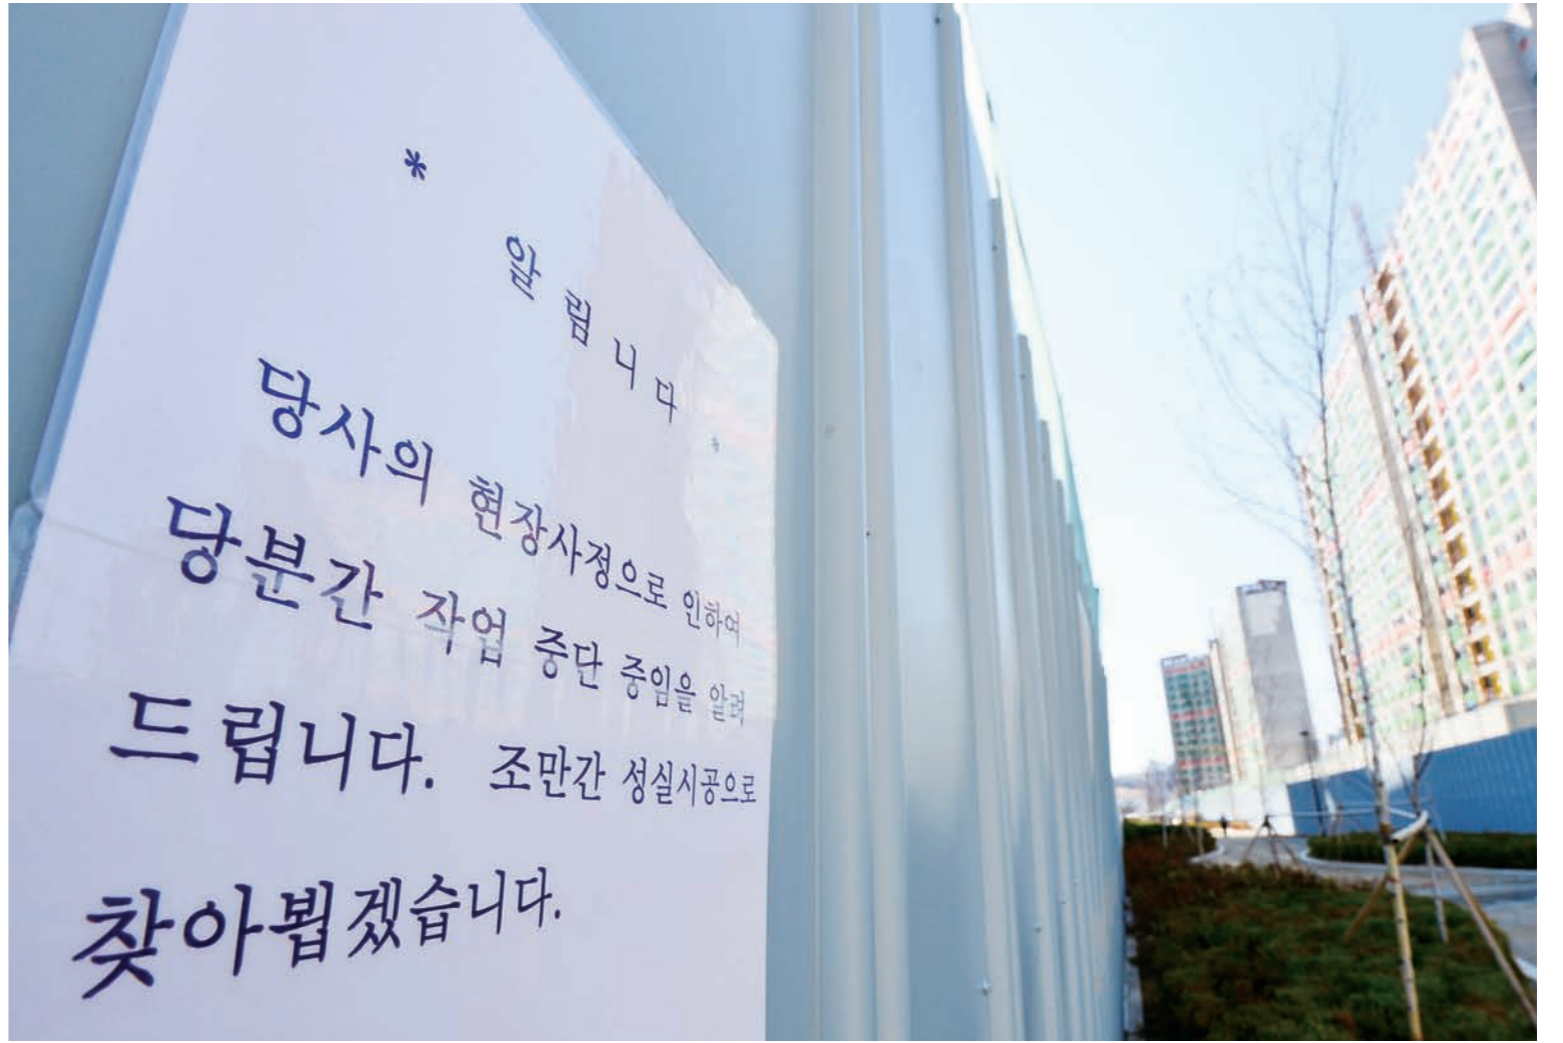 * 알 립 니 다 *
당사의 현장사정으로 인하여
당분간 작업 중단 중임을 알려
드립니다. 조만간 성실시공으로
찾아뵙겠습니다.